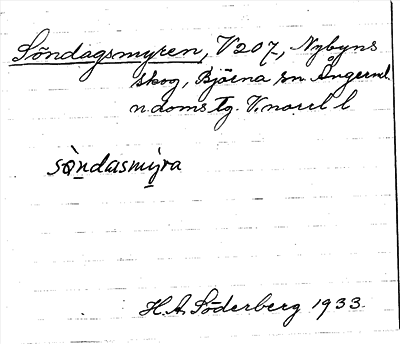 Söndagsmyren, V207, Nybyns
skog, Björna sn Ångerml.
ndoms Tg. V. norell
sòndasmýra
H. A. Söderberg 1933.